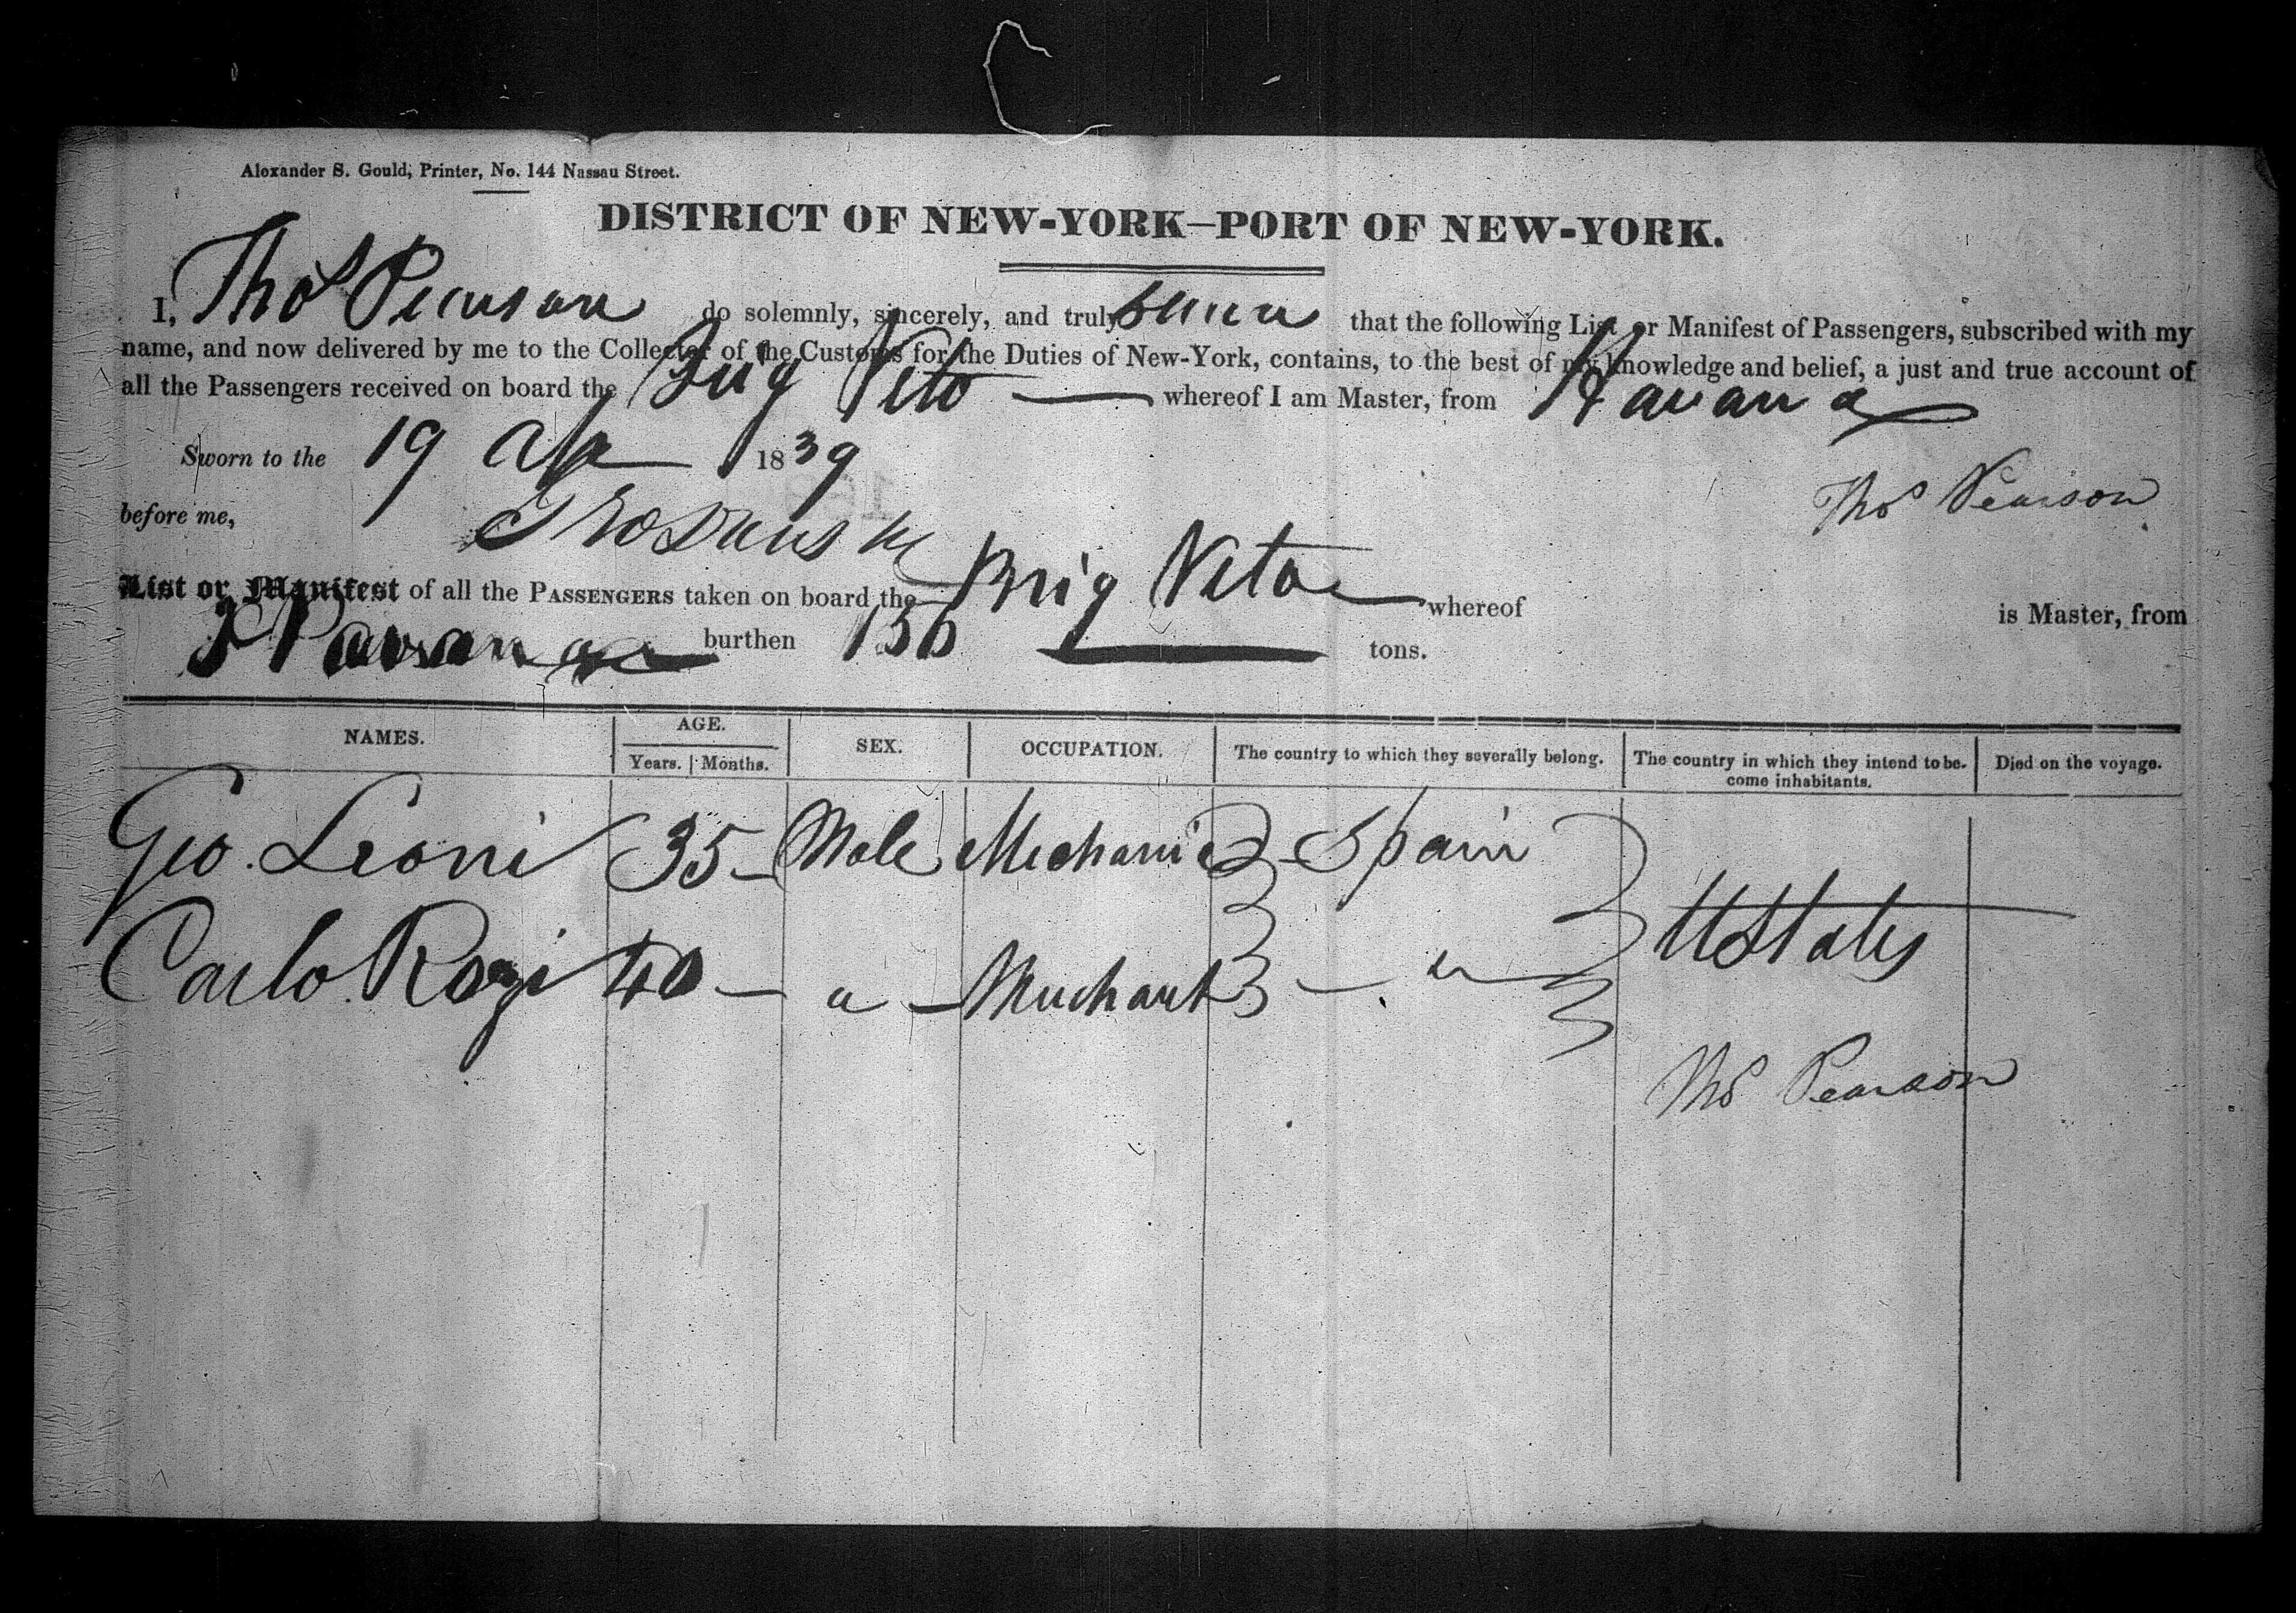 Alexander S. Gould, Printer, No. 144 Nassau Street.
DISTRICT OF NEW-YORK—PORT OF NEW-YORK.
I, Thos Pearson do solemnly, sincerely, and truly swear that the following List or Manifest of Passengers, subscribed with my
name, and now delivered by me to the Collector of the Customs for the Duties of New-York, contains, to the best of my knowledge and belief, a just and true account of
all the Passengers received on board the Brig Veto — whereof I am Master, from Havana
Sworn to the 19 Ap 1839
Thos Pearson
before me,
List or Manifest of all the PASSENGERS taken on board the Brig Veto whereof is Master, from
Havana burthen 156 tons.
NAMES. AGE. SEX. OCCUPATION. The country to which they severally belong. The country in which they intend to be- Died on the voyage.
Years. Months. come inhabitants.
Geo. Leoni 35 - Male Mechanic Spain
Carlo Rozi 40 — " — Merchant — " — UStates
Thos Pearson